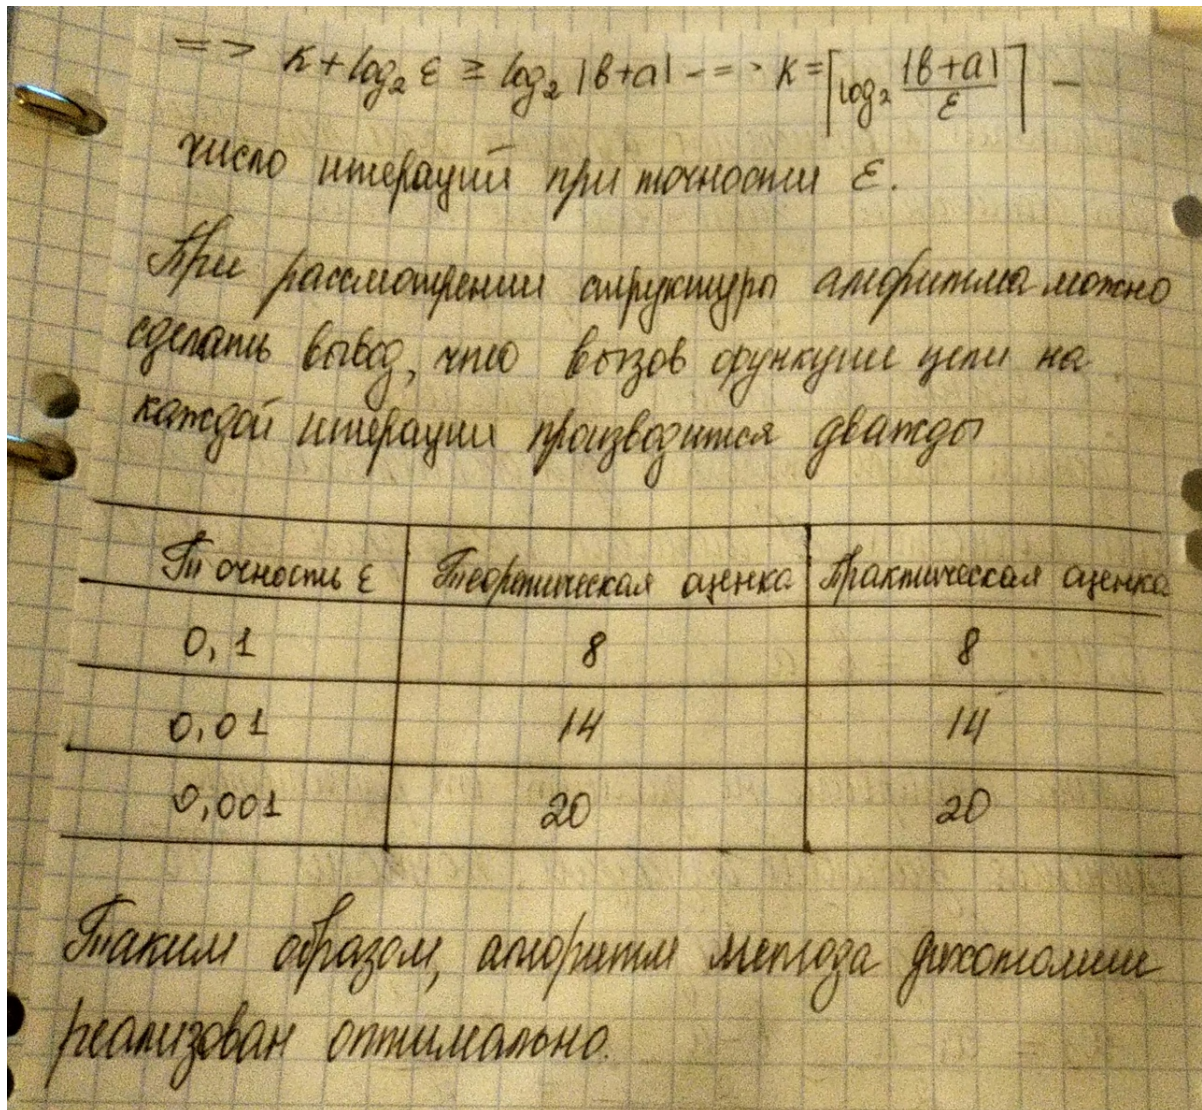 => K + log₂ ε ≥ log₂ |b+a| -=> K = ⌈log₂ |b+a|/ε⌉ –
число итераций при точности ε.
При рассмотрении структуры алгоритма можно
сделать вывод, что вызов функции цели на
каждой итерации производится дважды
Точность ε | Теоретическая оценка | Практическая оценка
0,1 | 8 | 8
0,01 | 14 | 14
0,001 | 20 | 20
Таким образом, алгоритм метода дихотомии
реализован оптимально.